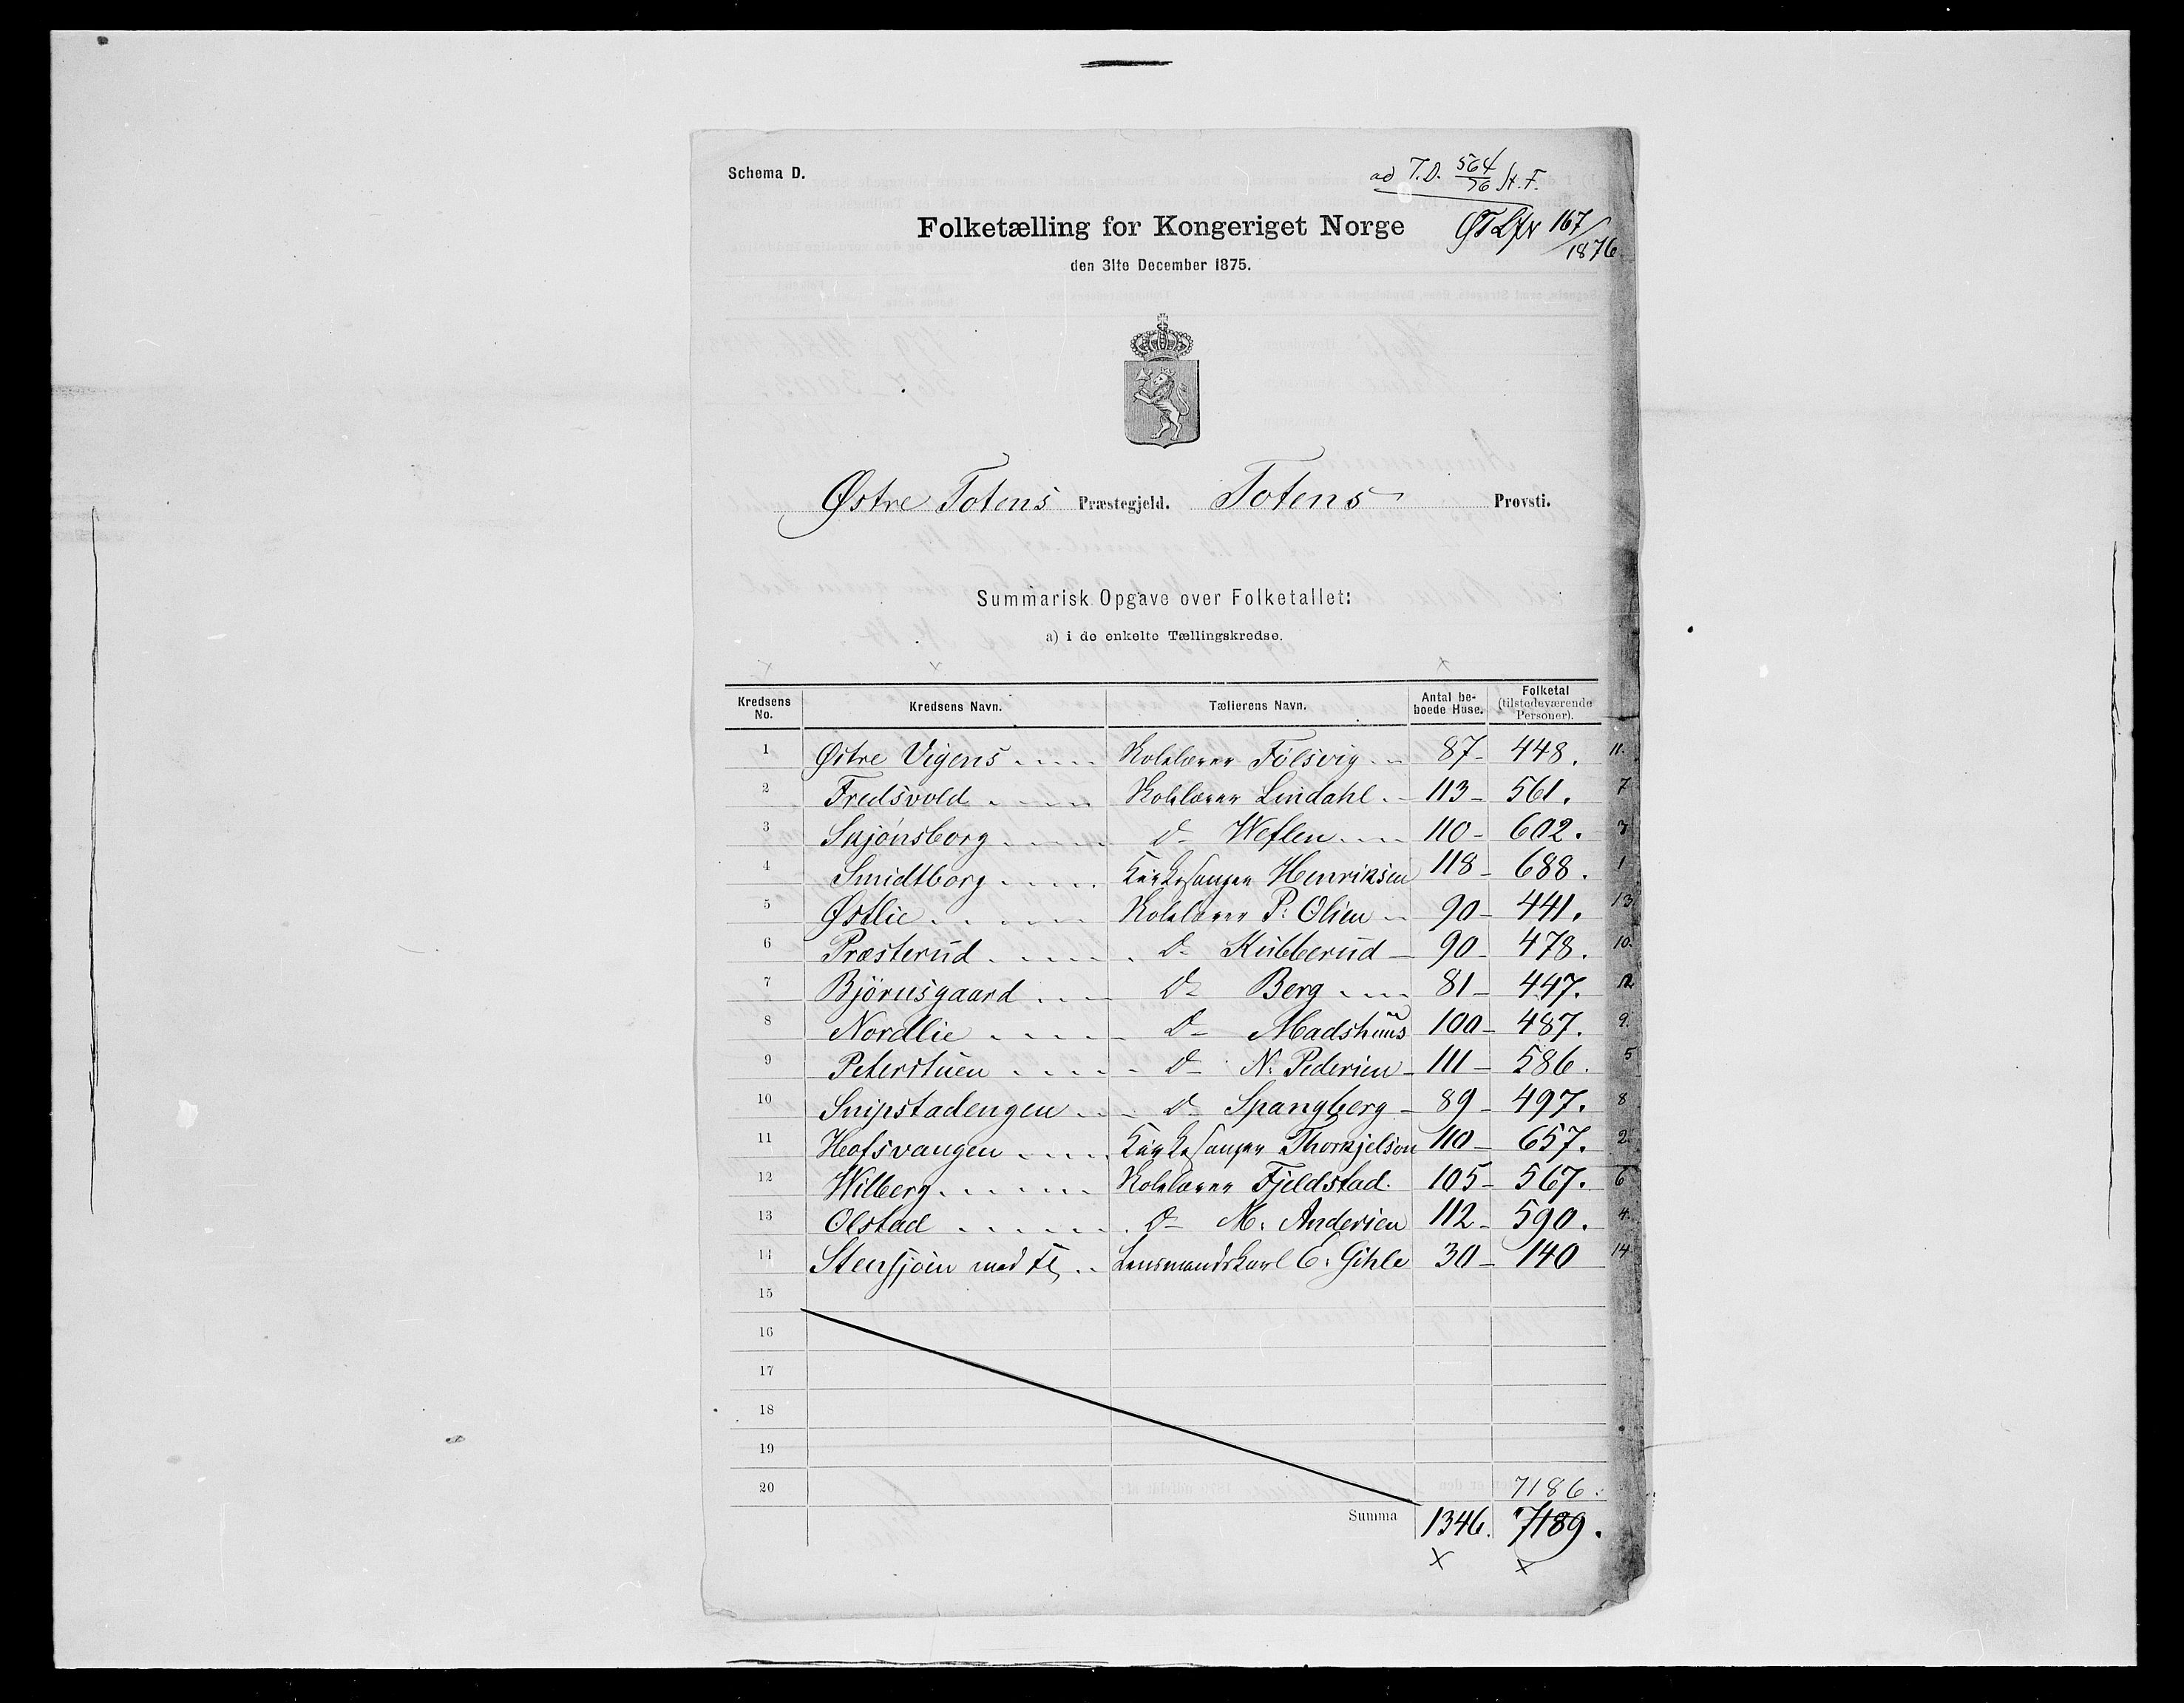 Schema D.
ad T.D. 564/76 St. F.
Folketælling for Kongeriget Norge
167/1876
den 31te December 1875.
Østre Totens Præstegjeld. Totens Provsti.
Summarisk Opgave over Folketallet:
a) i de enkelte Tællingskredse.
Kredsens No. Kredsens Navn. Tællerens Navn. Antal beboede Huse. Folketal (tilstedeværende Personer).
1 Østre Vigens Skolelærer Fölsvig 87 448. 11.
2 Fredsvold Skolelærer Lindahl. 113 561. 7
3 Skjönsborg Do Weflen 110 602. 3
4 Smidtborg Kirkesanger Henriksen 118 688. 1
5 Østlie Skolelærer P: Olsen 90 441. 13
6 Præsterud Do Kubberud 90 478. 10.
7 Björnsgaard Do Berg 81 447. 12
8 Nordlie Do Madshuus 100 487. 9.
9 Peterstuen Do N: Pedersen 111 586. 5
10 Snipstadengen Do Spangberg 89 497. 8
11 Hofsvangen Kirkesanger Thorkjelson 110 657. 2.
12 Wilberg Skolelærer Fjeldstad. 105 567. 6
13 Olstad Do M: Andersen 112 590. 4.
14 Stensjöen med fl. Lensmandskarl E: Gihle 30 140 14
15
16
17
18
19
20 7186.
Summa 1346. 7189.